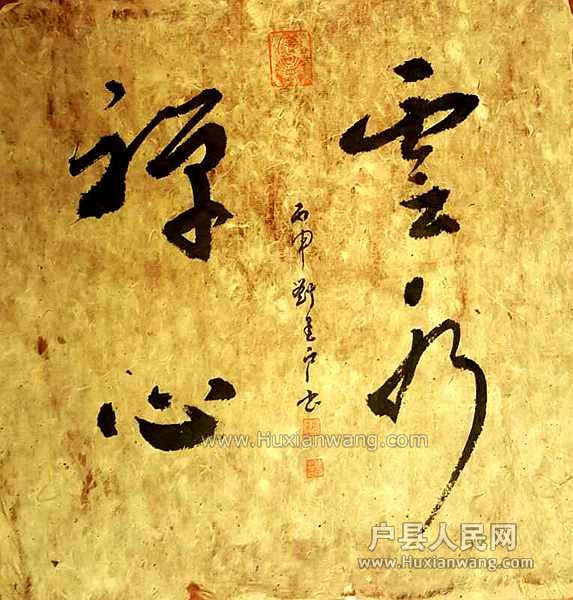 雲水
禪心
丙申劉
www.Huxianwang.com
户县人民网
www.Huxianwang.com